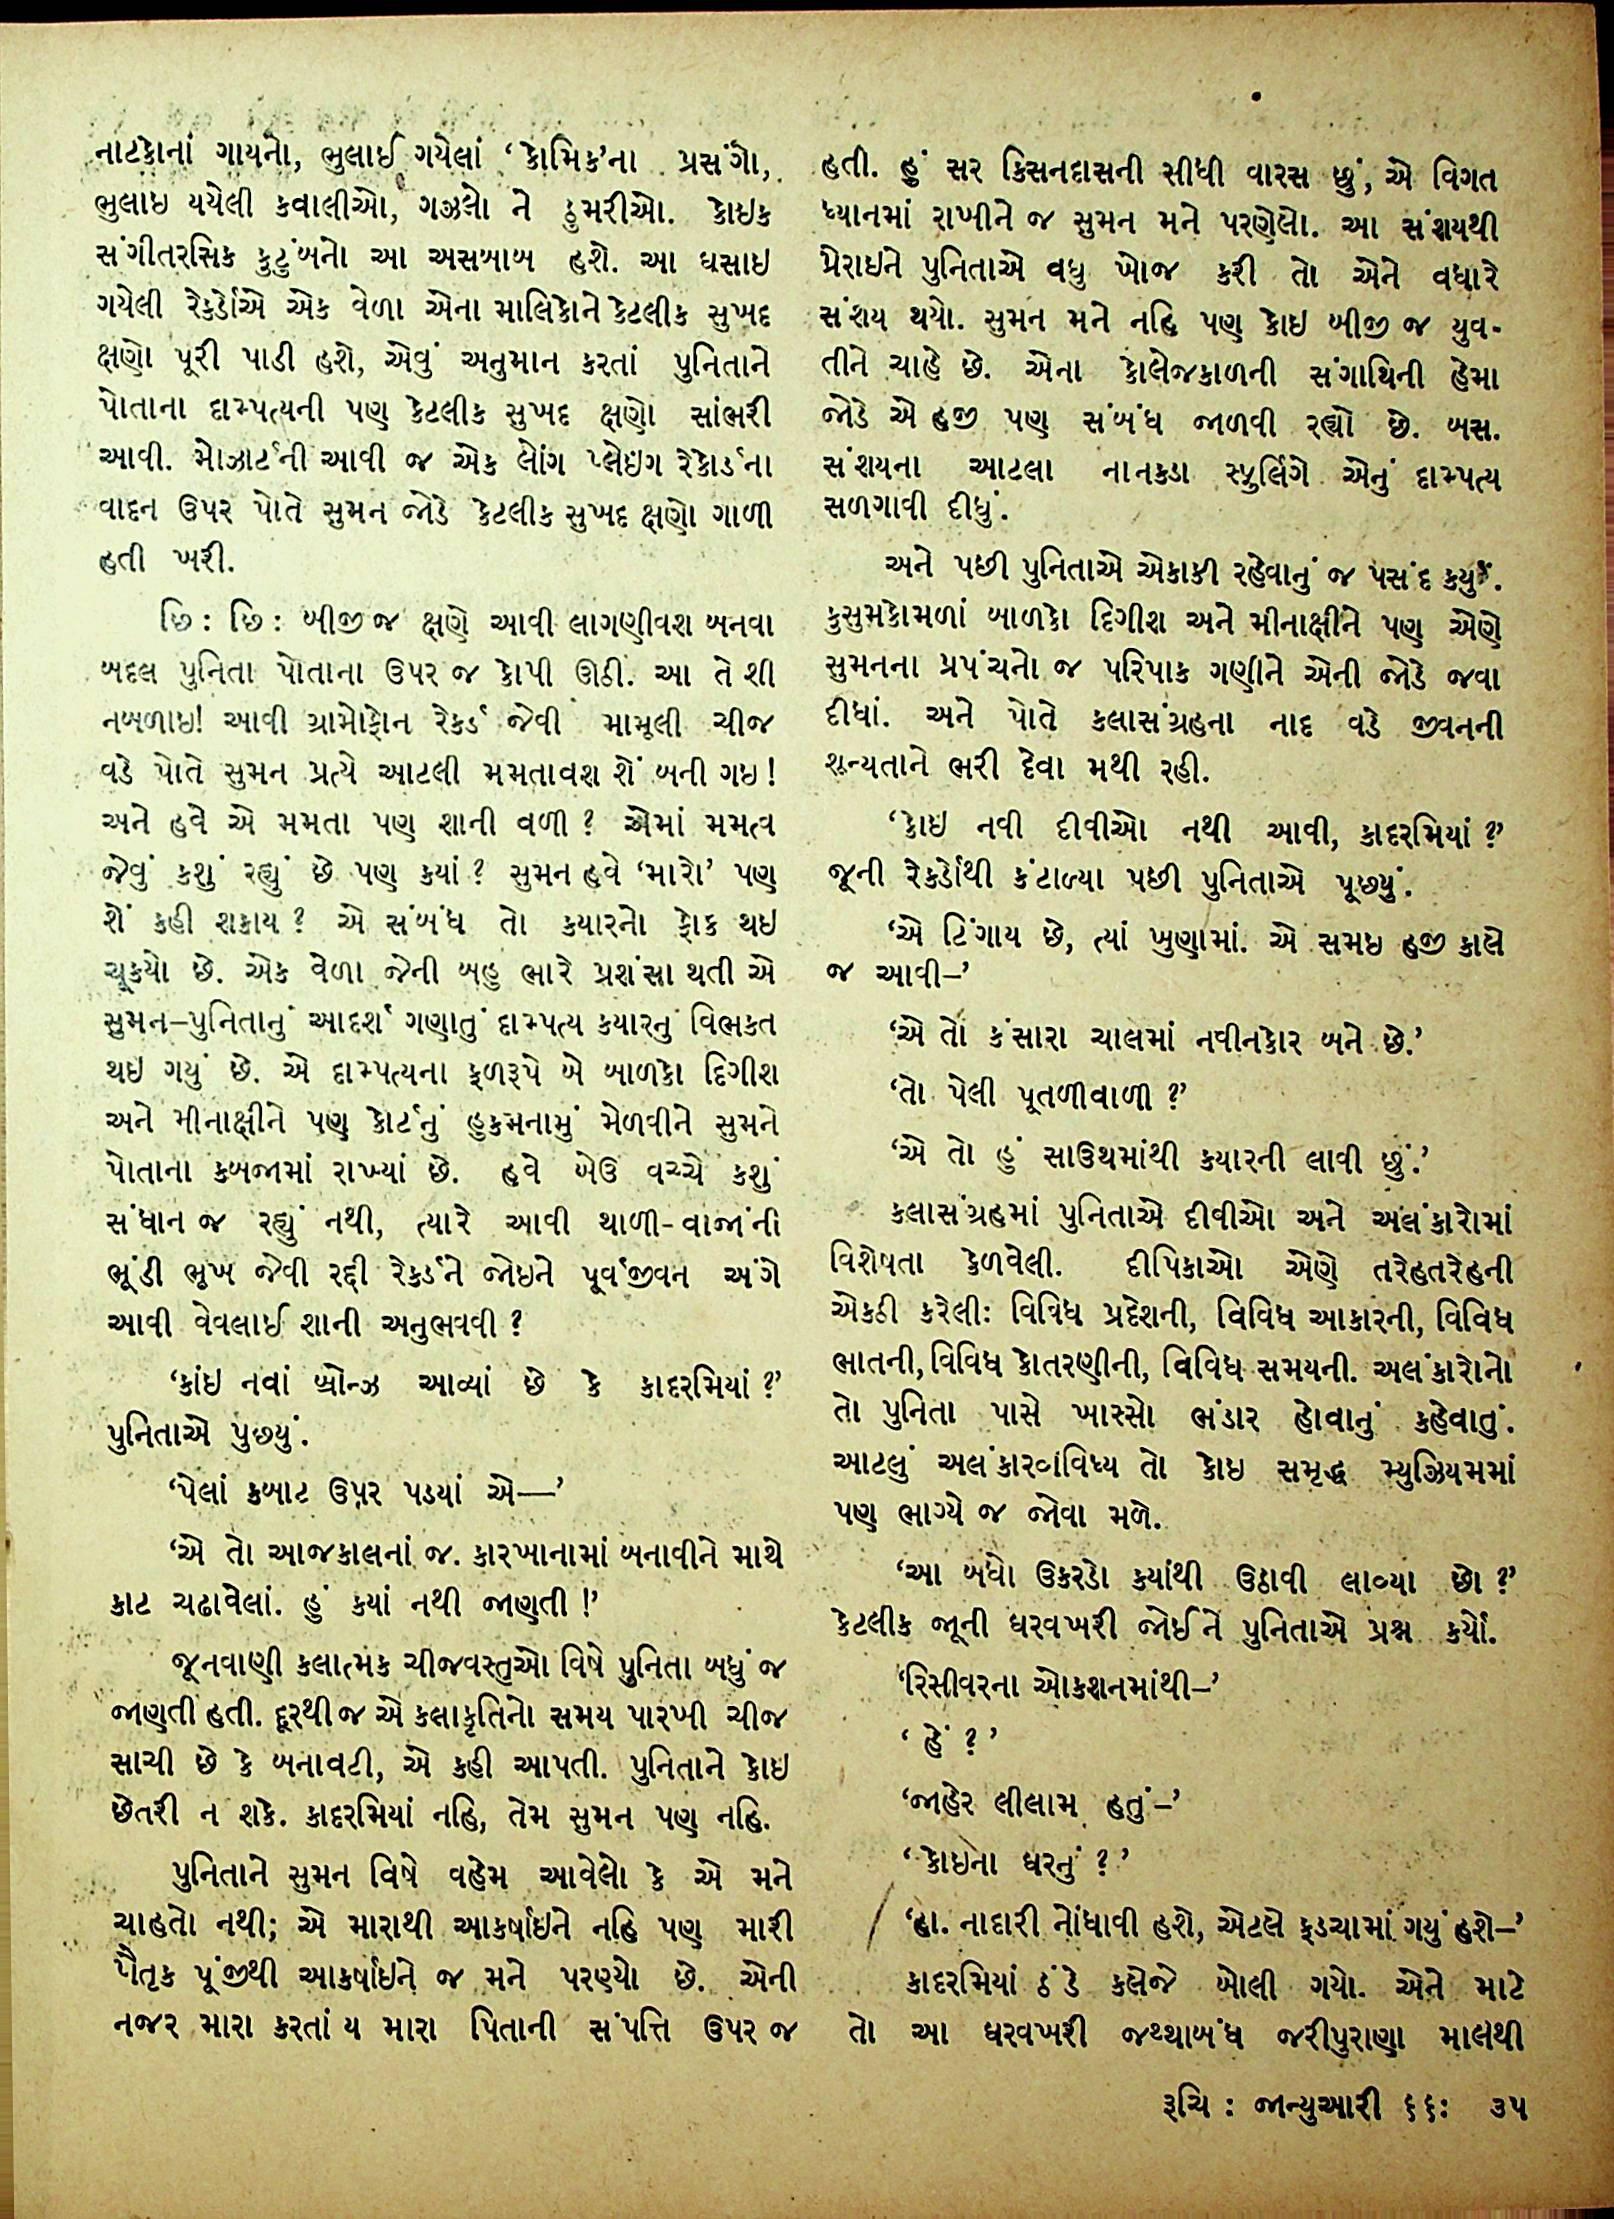 નાટકોનાં ગાયનો, ભુલાઈ ગયેલાં ‘કોમિક’ના પ્રસંગો,
ભુલાઇ યયેલી કવાલીઓ, ગઝલો ને ઠુમરીઓ. કોઇક
સંગીતરસિક કુટુંબનો આ અસબાબ હશે. આ ઘસાઇ
ગયેલી રેકર્ડોએ એક વેળા એના માલિકોને કેટલીક સુખદ
ક્ષણો પૂરી પાડી હશે, એવું અનુમાન કરતાં પુનિતાને
પોતાના દામ્પત્યની પણ કેટલીક સુખદ ક્ષણો સાંભરી
આવી. મોઝાર્ટની આવી જ એક લોંગ પ્લેઇંગ રેકોર્ડના
વાદન ઉપર પોતે સુમન જોડે કેટલીક સુખદ ક્ષણો ગાળી
હતી ખરી.
છિ: છિ: બીજી જ ક્ષણે આવી લાગણીવશ બનવા
બદલ પુનિતા પોતાના ઉપર જ કોપી ઊઠી. આ તે શી
નબળાઇ! આવી ગ્રામોફોન રેકર્ડ જેવી મામૂલી ચીજ
વડે પોતે સુમન પ્રત્યે આટલી મમતાવશ શેં બની ગઇ!
અને હવે એ મમતા પણ શાની વળી? એમાં મમત્વ
જેવું કશું રહ્યું છે પણ કયાં? સુમન હવે ‘મારો’ પણ
શેં કહી શકાય? એ સંબંધ તો કયારનો ફોક થઇ
ચૂકયો છે. એક વેળા જેની બહુ ભારે પ્રશંસા થતી એ
સુમન–પુનિતાનું આદર્શ ગણાતું દામ્પત્ય કયારનું વિભકત
થઇ ગયું છે. એ દામ્પત્યના ફળરૂપે બે બાળકો દિગીશ
અને મીનાક્ષીને પણ કોર્ટનું હુકમનામું મેળવીને સુમને
પોતાના કબજામાં રાખ્યાં છે. હવે બેઉ વચ્ચે કશું
સંધાન જ રહ્યું નથી, ત્યારે આવી થાળી-વાજાંની
ભૂંડી ભૂખ જેવી રદ્દી રેકર્ડને જોઇને પૂર્વજીવન અંગે
આવી વેવલાઈ શાની અનુભવવી?
‘કાંઇ નવાં બ્રોન્ઝ આવ્યાં છે કે કાદરમિયાં?’
પુનિતાએ પુછયું.
‘પેલાં કબાટ ઉપર પડયાં એ—’
‘એ તો આજકાલનાં જ. કારખાનામાં બનાવીને માથે
કાટ ચઢાવેલાં. હું કયાં નથી જાણતી!’
જૂનવાણી કલાત્મક ચીજવસ્તુઓ વિષે પુનિતા બધું જ
જાણતી હતી. દૂરથી જ એ કલાકૃતિનો સમય પારખી ચીજ
સાચી છે કે બનાવટી, એ કહી આપતી. પુનિતાને કોઇ
છેતરી ન શકે. કાદરમિયાં નહિ, તેમ સુમન પણ નહિ.
પુનિતાને સુમન વિષે વહેમ આવેલો કે એ મને
ચાહતો નથી; એ મારાથી આકર્ષાઇને નહિ પણ મારી
પૈતૃક પૂંજીથી આકર્ષાઇને જ મને પરણ્યો છે. એની
નજર મારા કરતાં ય મારા પિતાની સંપત્તિ ઉપર જ
હતી. હું સર કિસનદાસની સીધી વારસ છું, એ વિગત
ધ્યાનમાં રાખીને જ સુમન મને પરણેલો. આ સંશયથી
પ્રેરાઇને પુનિતાએ વધુ ખોજ કરી તો એને વધારે
સંશય થયો. સુમન મને નહિ પણ કોઇ બીજી જ યુવ-
તીને ચાહે છે. એના કોલેજકાળની સંગાથિની હેમા
જોડે એ હજી પણ સંબંધ જાળવી રહ્યો છે. બસ.
સંશયના આટલા નાનકડા સ્ફુલિંગે એનું દામ્પત્ય
સળગાવી દીધું.
અને પછી પુનિતાએ એકાકી રહેવાનું જ પસંદ કર્યું.
કુસુમકોમળાં બાળકો દિગીશ અને મીનાક્ષીને પણ એણે
સુમનના પ્રપંચનો જ પરિપાક ગણીને એની જોડે જવા
દીધાં. અને પોતે કલાસંગ્રહના નાદ વડે જીવનની
શૂન્યતાને ભરી દેવા મથી રહી.
‘કોઇ નવી દીવીઓ નથી આવી, કાદરમિયાં?’
જૂની રેકર્ડોથી કંટાળ્યા પછી પુનિતાએ પૂછયું.
‘એ ટિંગાય છે, ત્યાં ખુણામાં. એ સમઇ હજી કાલે
જ આવી–’
‘એ તો કંસારા ચાલમાં નવીનકોર બને છે.’
‘તો પેલી પૂતળીવાળી?’
‘એ તો હું સાઉથમાંથી કયારની લાવી છું.’
કલાસંગ્રહમાં પુનિતાએ દીવીઓ અને અલંકારોમાં
વિશેષતા કેળવેલી. દીપિકાઓ એણે તરેહતરેહની
એકઠી કરેલીઃ વિવિધ પ્રદેશની, વિવિધ આકારની, વિવિધ
ભાતની, વિવિધ કોતરણીની, વિવિધ સમયની. અલંકારોનો
તો પુનિતા પાસે ખાસ્સો ભંડાર હોવાનું કહેવાતું.
આટલું અલંકારવૈવિધ્ય તો કોઇ સમૃદ્ધ મ્યુઝિયમમાં
પણ ભાગ્યે જ જોવા મળે.
‘આ બધો ઉકરડો કયાંથી ઉઠાવી લાવ્યા છો?’
કેટલીક જૂની ઘરવખરી જોઈને પુનિતાએ પ્રશ્ન કર્યો.
‘રિસીવરના ઓકશનમાંથી–’
‘હેં?’
‘જાહેર લીલામ હતું–’
‘કોઇના ઘરનું?’
‘હા. નાદારી નોંધાવી હશે, એટલે ફડચામાં ગયું હશે–’
કાદરમિયાં ઠંડે કલેજે બોલી ગયો. એને માટે
તો આ ઘરવખરી જથ્થાબંધ જરીપુરાણા માલથી
રૂચિ : જાન્યુઆરી ૬૬: ૩૫